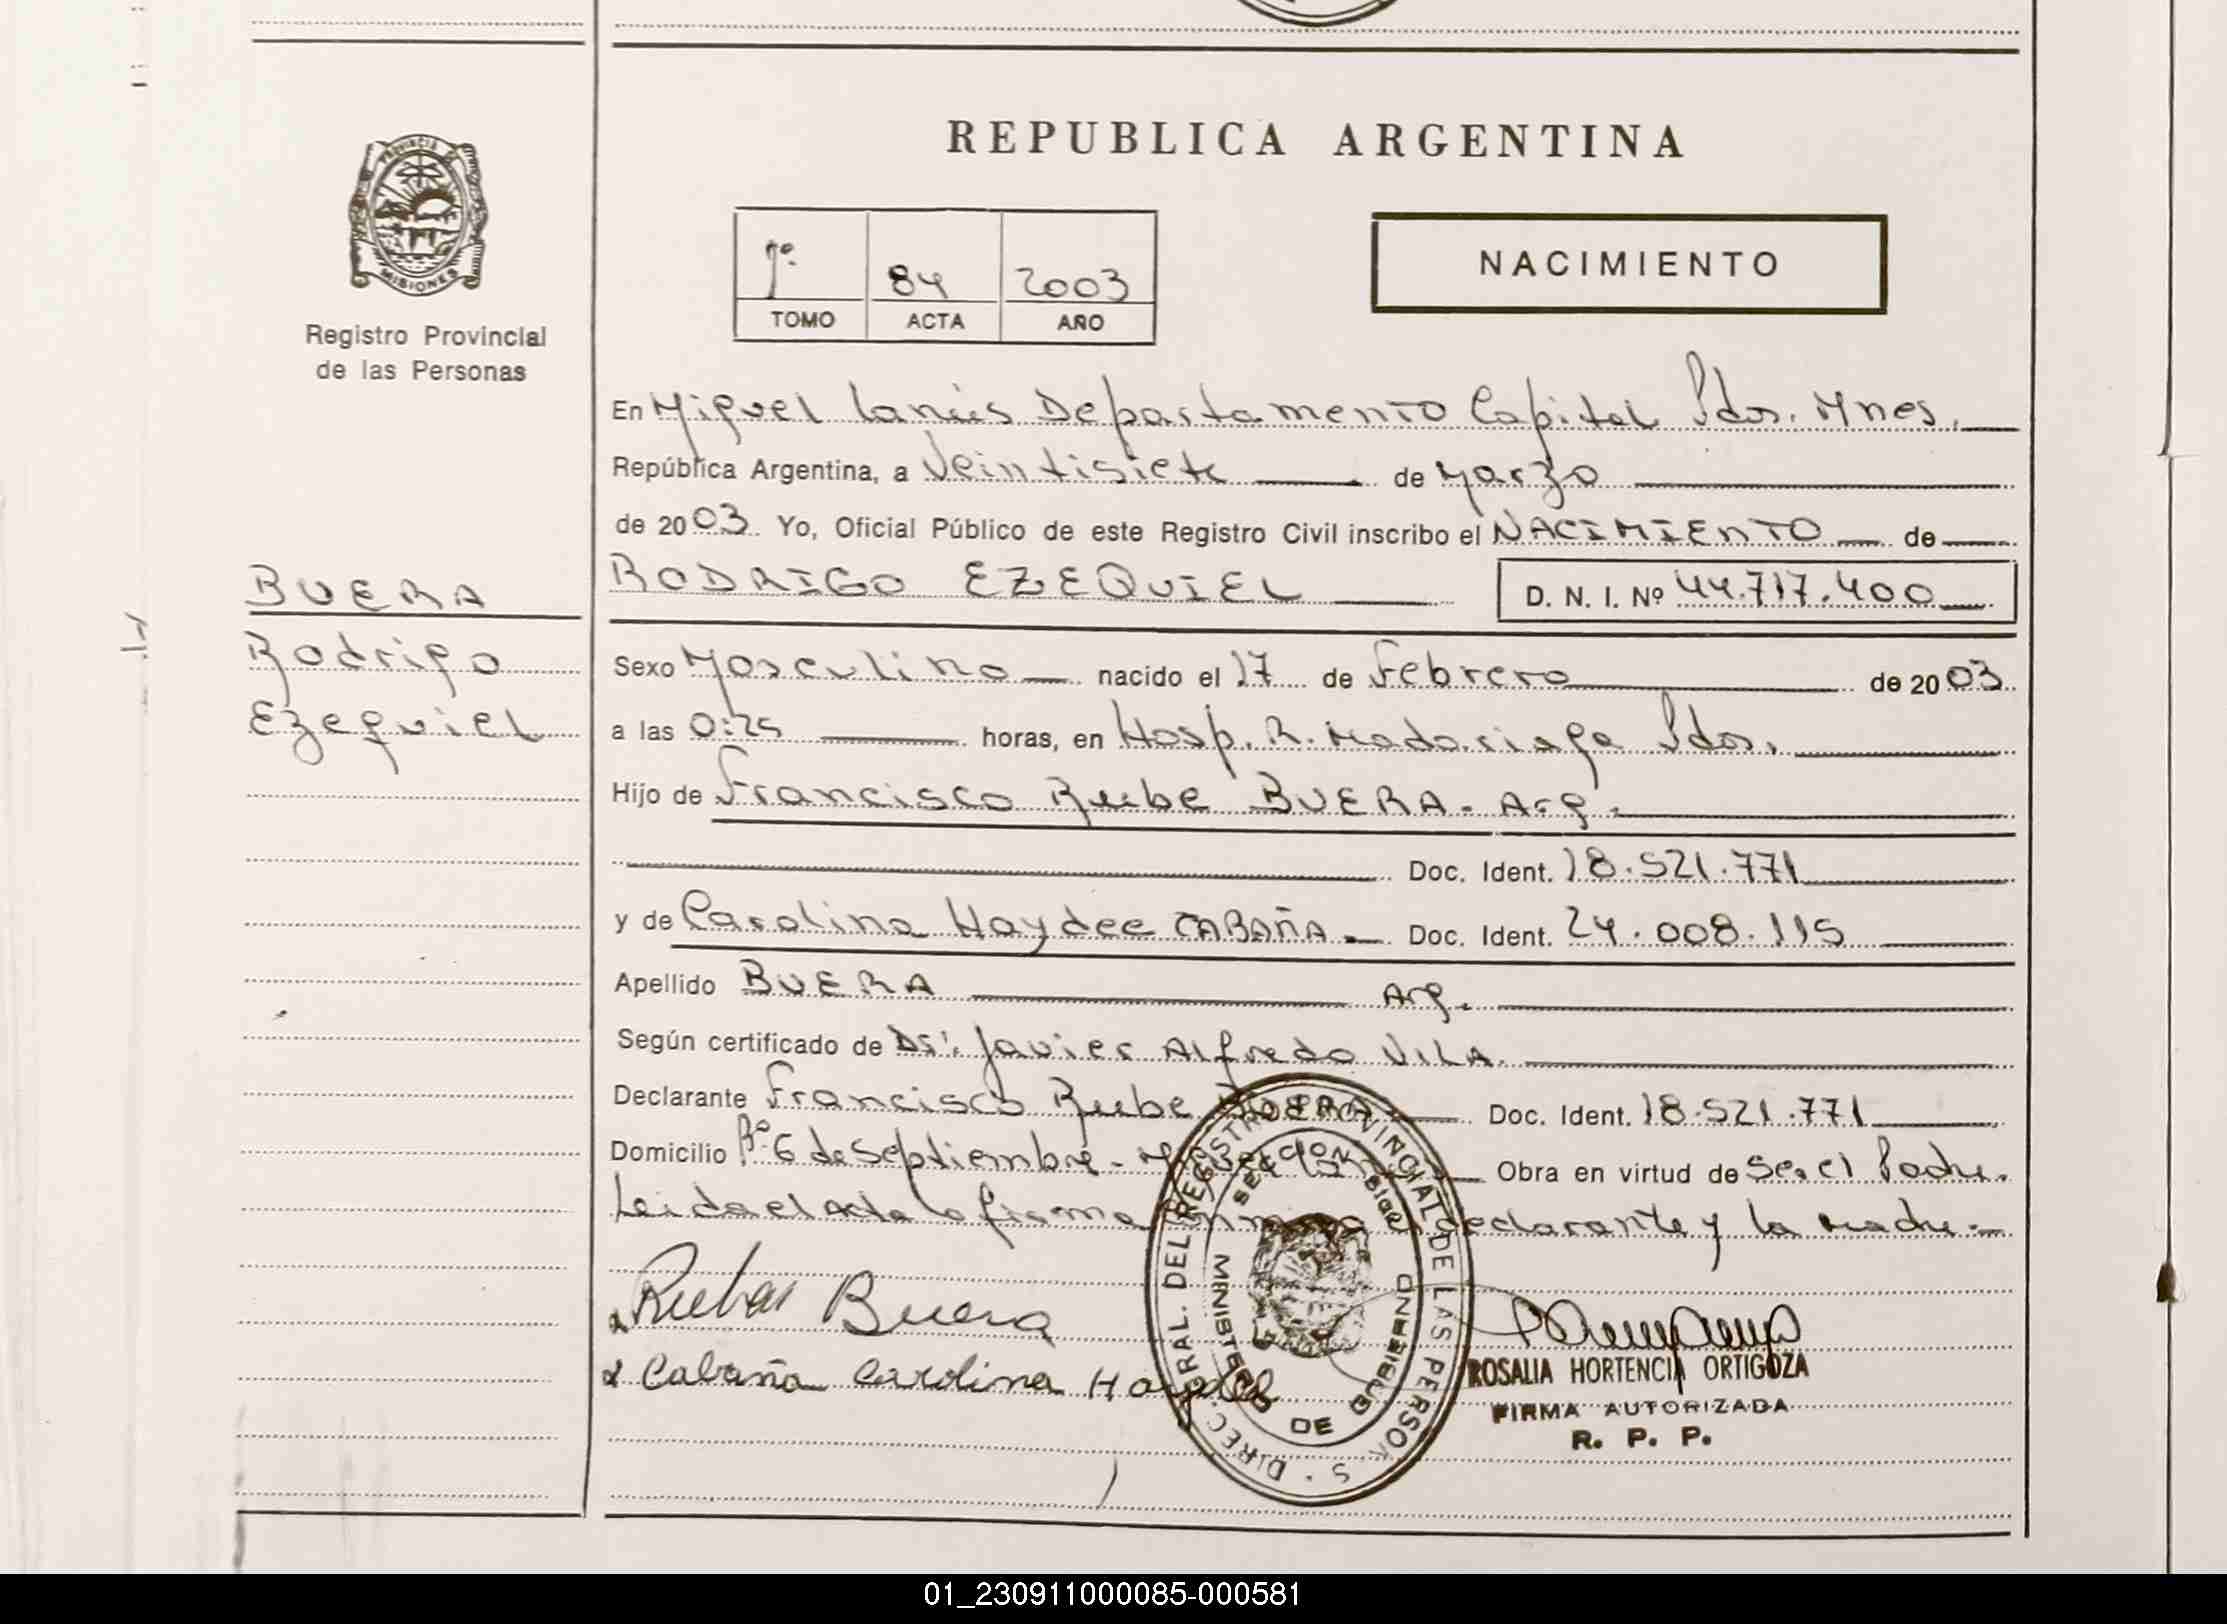 REPUBLICA ARGENTINA
PROVINCIA DE
MISIONES
Registro Provincial
de las Personas
1º 84 2003
TOMO ACTA AÑO
NACIMIENTO
En Miguel Lanús Departamento Capital Pdas. Mnes.
República Argentina, a Veintisiete de Marzo
de 2003. Yo, Oficial Público de este Registro Civil inscribo el NACIMIENTO de
BUERA
Rodrigo
Ezequiel
RODRIGO EZEQUIEL D. N. I. Nº 44.717.400
Sexo Masculino nacido el 17 de Febrero de 2003
a las 0:25 horas, en Hosp. R. Madariaga Pdas.
Hijo de Francisco Rube BUERA - Arg.
Doc. Ident. 18.521.771
y de Carolina Haydee CABAÑA Doc. Ident. 24.008.115
Apellido BUERA Arg.
Según certificado de Dr. Javier Alfredo VILA.
Declarante Francisco Rube BUERA Doc. Ident. 18.521.771
Domicilio Bº 6 de Septiembre - Miguel Lanús Obra en virtud de Ser el Padre.
Leida el Acta la firma conmigo el declarante y la madre
Buera
Cabaña Carolina Haydee
DIREC. GRAL. DEL REGISTRO PROVINCIAL DE LAS PERSONAS
MINISTERIO DE GOBIERNO
ROSALIA HORTENCIA ORTIGOZA
FIRMA AUTORIZADA
R. P. P.
01_230911000085-000581